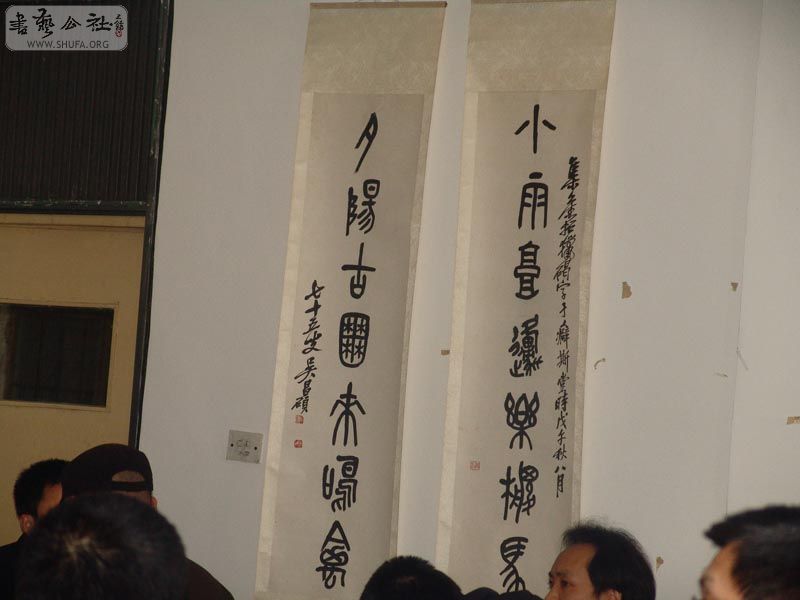 書藝公社
WWW.SHUFA.ORG
小雨邍樂馬
集獵碣字于癖斯堂時戊午秋八月
夕陽古囿來鳴禽
七十五叟吳昌碩